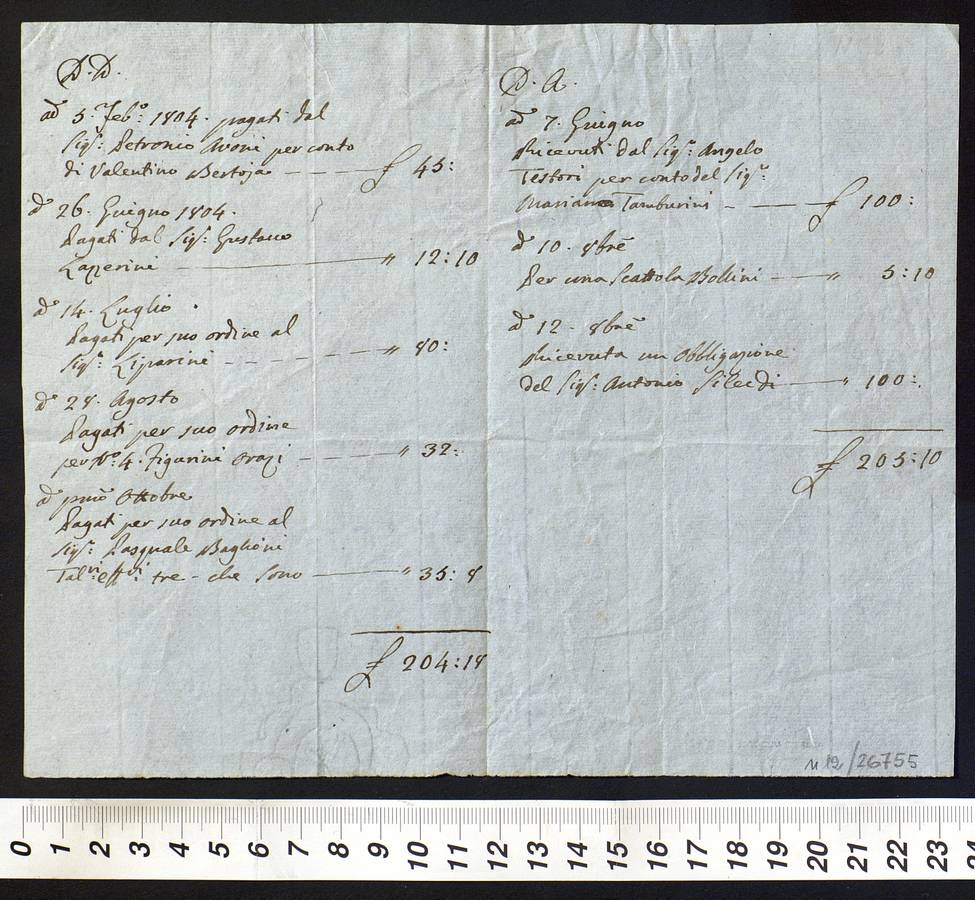 D. D.
adì 5. Feb.º 1804. pagati dal
Sig.r Petronio Avoni per conto
di Valentino Bertoja £ 45:
d.º 26. Giugno 1804.
Pagati dal Sig.r Gustavo
Lazzerini " 12:10
d.º 14. Luglio
Pagati per suo ordine al
Sig.r Liparini " 80:
d.º 28. Agosto
Pagati per suo ordine
per N.º 4. Figurini Orazi " 32:
d.º pmo Ottobre
Pagati per suo ordine al
Sig.r Pasquale Baglioni
Tal.vi eff.vi tre - che sono " 35: 8
£ 204:18
D. A.
adì 7. Giugno
Ricevuti dal Sig.r Angelo
Testori per conto del Sig.r
Mariano Tamburini £ 100:
d.º 10. 8bre
Per una Scattola Bollini " 5:10
d.º 12. 8bre
Ricevuta un Obbligazione
del Sig.r Antonio " 100:
£ 205:10
n 12/26755
0 1 2 3 4 5 6 7 8 9 10 11 12 13 14 15 16 17 18 19 20 21 22 23 24